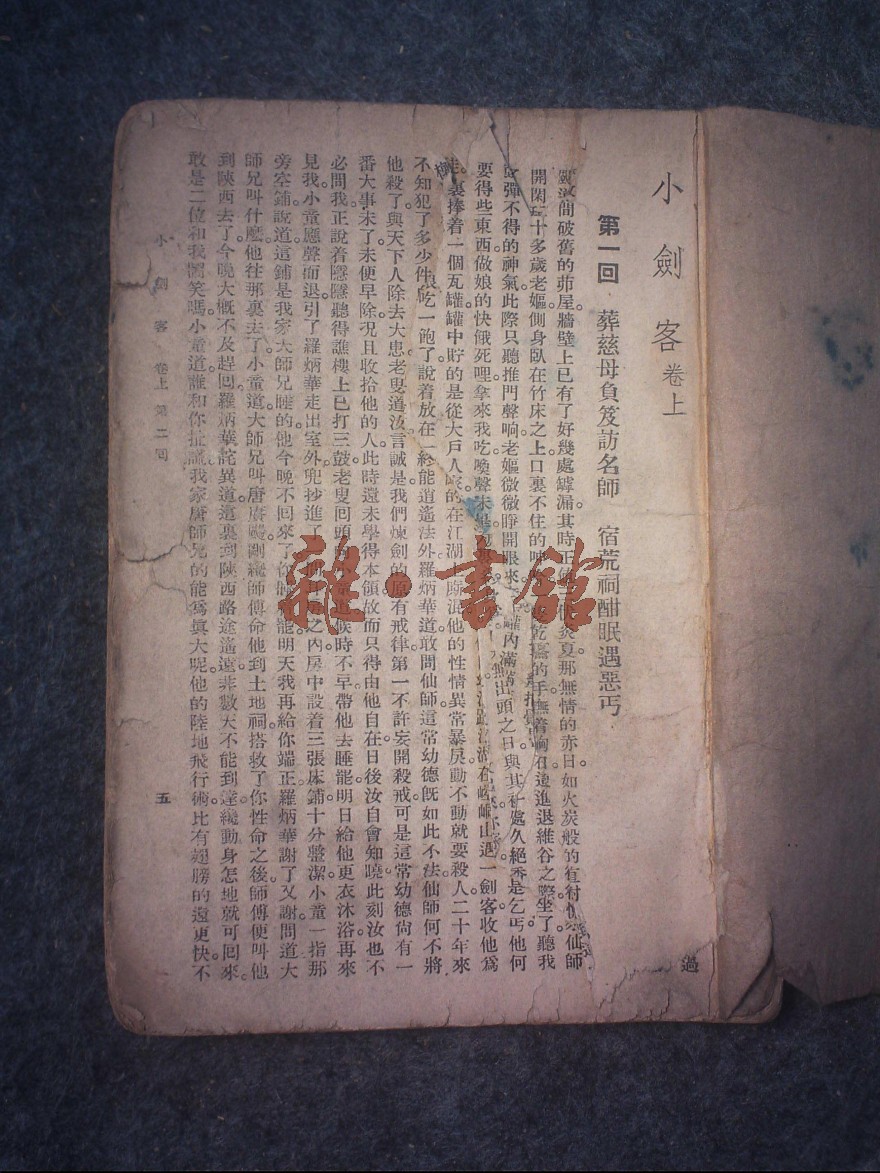 小劍客 卷上
第一回 葬慈母負笈訪名師 宿荒祠酣眠遇惡丐
間破舊的茆屋。牆壁上已有了好幾處罅漏。其時正 炎夏。那無情的赤日。如火炭般的 仙師
開閑 十多歲老嫗。側身臥在竹床之上。口裏不住的 的手。撫着 進退維谷之際。坐了聽我
彈不得的神氣。此際只聽推門聲响。老嫗微微睜開眼來 罐內滿 無出頭之日。與其 處久絕香 是乞丐。他何
要得些東西做娘的快餓死哩。拿來我吃。喚聲未 山遇一劍客。收他爲
裏捧着一個瓦罐。罐中貯的是從大戶人家 的。在江湖上 混。他的性情異常暴戾。動不動就要殺人。二十年來
不知犯了多少件 吃一飽了。說着放在一 能逍遙法外。羅炳華道。敢問仙師。這常幼德旣如此不法。仙師何不將
他殺了。與天下人除去大患。老叟道。汝言誠是。我們煉劍的。原有戒律。第一不許妄開殺戒。可是這常幼德尙有一
番大事未了。未便早除。况且收拾他的人。此時還未學得本領。故而只得由他自在。日後汝自會知曉。此刻汝也不
必問我。正說着。隱隱聽得譙樓上已打三鼓。老叟囘頭 小童道。候時不早。帶他去睡罷。明日給他更衣沐浴。再來
見我。小童應聲而退。引了羅炳華走出室外。兜抄進了 之內。房中設着三張床鋪。十分整潔。小童一指那
旁空鋪說道。這鋪是我家大師兄睡的。他今晚不囘來了。你 罷。明天我再給你端正。羅炳華謝了又謝。問道。大
師兄叫什麽。他往那裏去了。小童道。大師兄叫唐 剛纔師傅命他到土地祠搭救了你性命之後。師傅便叫他
到陝西去了。今晚大概不及趕囘。羅炳華詫異道。這裏到陝西。路途遙遠。非數天不能到達。纔動身怎地就可囘來。
敢是二位和我 笑嗎。小童道。誰和你扯謊。我家唐師兄的能爲眞大呢。他的陸地飛行術。比有翅膀的還更快。不
過
小劍客 卷上 第二囘
五
雜·書館